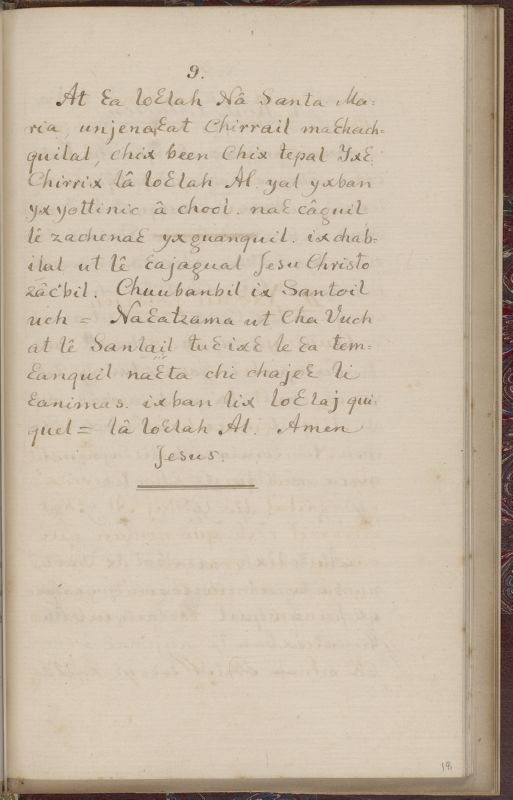 9.
At Ɛa loƐlah Nâ Santa Ma=
ria, unjenaƐat Chirrail maƐhach=
quilal, chix been Chix tepal YxƐ
Chirrix lâ loƐlah Al. yal yxban
yx yottinic â chool. naƐ câguil
lê zachenaƐ yx guanquil. ixchab=
ilal ut lê Ɛajagual Jesu Christo
zâcbil. Chuubanbil ix Santoil
uch = NaƐatzama ut Cha Vuch
at lê Santail tuƐixƐ le Ɛa tem=
Ɛanquil naƐta chi chajeƐ li
Ɛanimas. ixban lix loƐlaj qui=
quel = lâ loƐlah Al. Amen
Jesus.
18